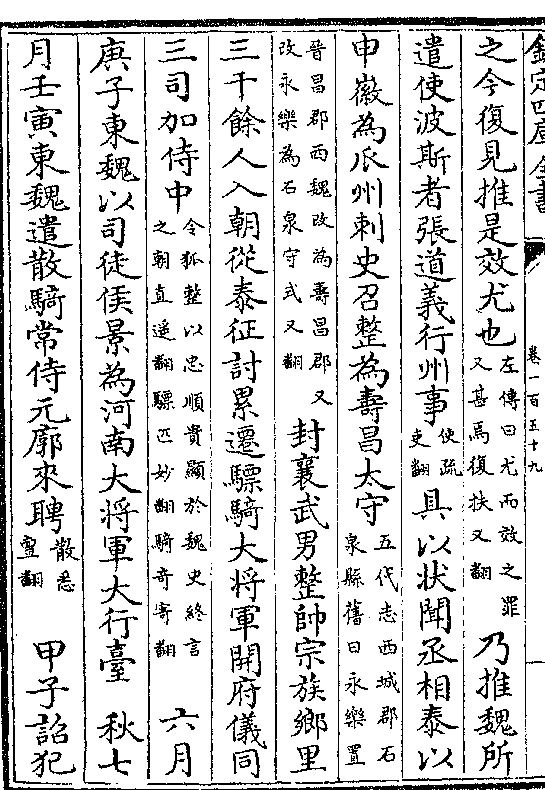 欽定四庫全書
卷一百五十九
之今復見推是效尤也左傳曰尤而效之罪又甚焉復扶又翻乃推魏所
遣使波斯者張道義行州事使疏吏翻具以狀聞丞相泰以
申徽為瓜州刺史召整為壽昌太守五代志西城郡石泉縣舊曰永樂置
晉昌郡西魏改為壽昌郡又改永樂為石泉守式又翻封襄武男整帥宗族鄉里
三千餘人入朝從泰征討累遷驃騎大將軍開府儀同
三司加侍中令狐整以忠順貴顯於魏史終言之朝直遥翻驃匹妙翻騎奇寄翻六月
庚子東魏以司徒侯景為河南大將軍大行臺 秋七
月壬寅東魏遣散騎常侍元廓來聘散悉亶翻 甲子詔犯